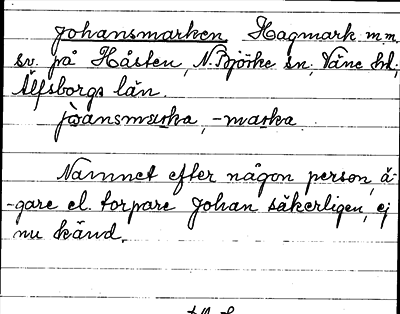 Johansmarken Hagmark m.m.
sv. på Håsten, N. Björke sn, Väne hd,
Älfsborgs län.
jòansmarka, -marka
Namnet efter någon person, ä-
-gare el. torpare Johan säkerligen, ej
nu känd.